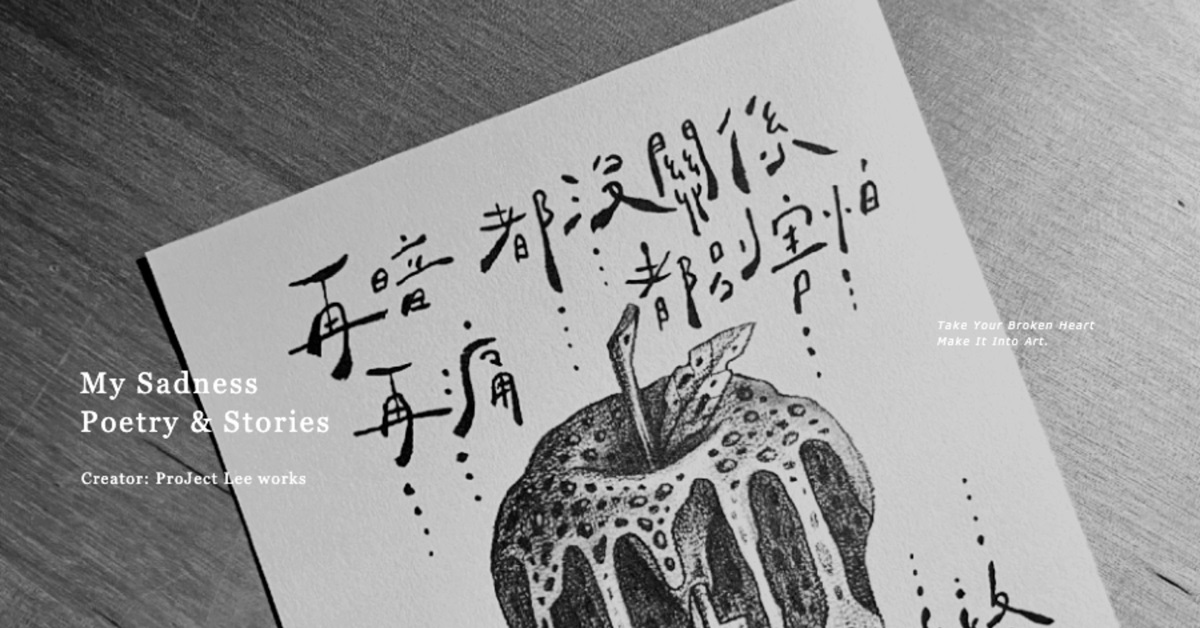 再暗 都沒關係
再痛 都別害怕
My Sadness
Poetry & Stories
Creator: ProJect Lee works
Take Your Broken Heart
Make It Into Art.